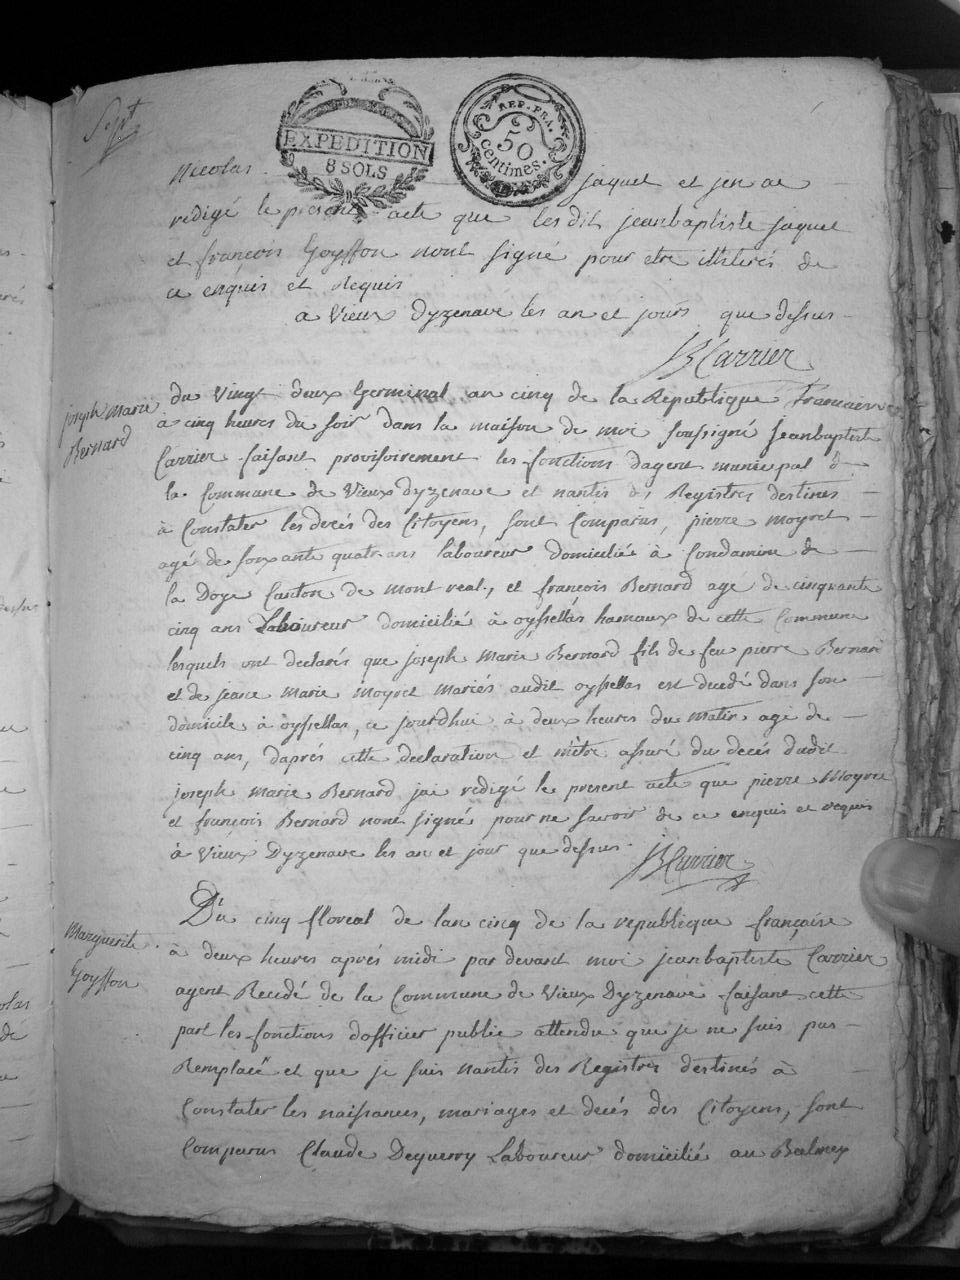 Sept
EXPEDITION
8 SOLS
REP. FRA.
50
centimes.
Nicolas jaquet et jen ai
redigé le present acte que les dit jeanbaptiste jaquet
et françois Goyffon nont signé pour etre illiterés de
ce enquis et Requis
a Vieux Dyzenave les an et jours que dessus
JBCarrier
joseph Marie
Bernard
du Vingt deux Germinal an cinq de la Republique francaise
à cinq heures du soir dans la maison de moi soussigné Jeanbaptiste
Carrier faisant provisoirement les fonctions dagent municipal de
la Commune de Vieux dyzenave et nantis des Registres destines
à Constater les decés des Citoyens, sont Comparus, pierre moyret
agé de soixante quatre ans laboureur domicilié à Condamine de
la Doye Canton de mont real, et françois Bernard agé de cinquante
cinq ans Laboureur domicilié à oyssellas hamaux de cette Commune
lesquels ont declarés que joseph Marie Bernard fils de feu pierre Bernard
et de jeane Marie Moyret Mariés audit oyssellas est decedé dans son
domicile à oyssellas, ce jourdhui à deux heures du matin agé de
cinq ans, daprés cette declaration et m'etre assuré du decés dudit
joseph Marie Bernard jai redigé le present acte que pierre Moyret
et françois Bernard nont signé pour ne savoir de ce enquis et requis
à Vieux Dyzenave les an et jour que dessus.
JBCarrier
Marguerite
Goyffon
Du cinq floreal de lan cinq de la republique française
à deux heures aprés midi par devant moi jeanbaptiste Carrier
agent de la Commune de Vieux Dyzenave faisant cette
part les fonctions dofficier public attendu que je ne suis pas
Remplacé et que je suis nantis des Registres destinés à
Constater les naissances, mariages et decés des Citoyens, sont
Comparus Claude Deguerry Laboureur domicilié au Balmey